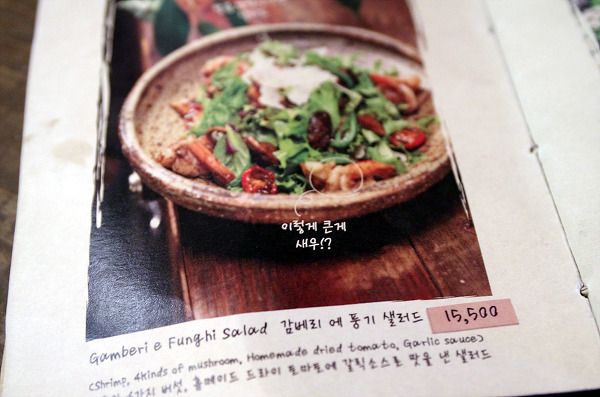 이렇게 큰게
새우!?
Gamberi e Funghi Salad 감베리 에 풍기 샐러드 15,500
(Shrimp, 4kinds of mushroom, Homemade dried tomato, Garlic sauce)
버섯, 홈메이드 드라이 토마토에 갈릭소스로 맛을 낸 샐러드